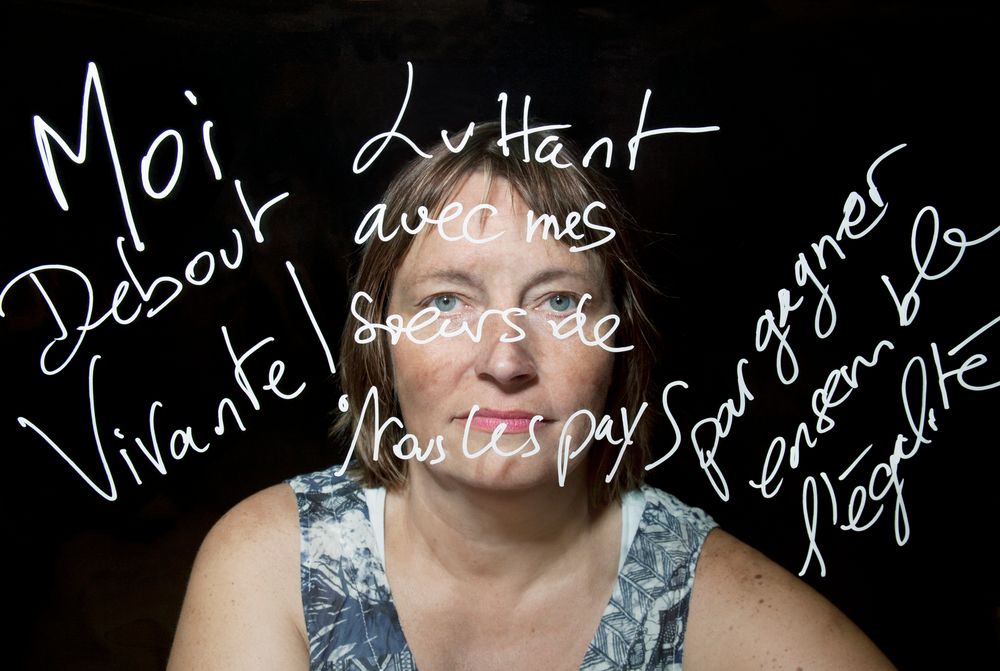 Moi
Debout
Vivante !
Luttant
avec mes
soeurs de
tous les pays
par gagner
ensemble
l'égalité